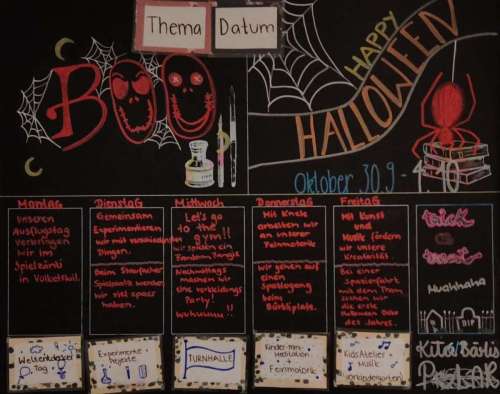 Thema
Datum
BOO
HAPPY
HALLOWEEN
Oktober 30.9 - 4.10
Montag
Unseren
Ausflugstag
verbringen
wir im
Spielzänti
in Volketswil.
Dienstag
Gemeinsam
Experimentieren
wir mit verschiedensten
Dingen.
Beim
Spielplatz werden
wir viel spass
haben.
Mittwoch
Let's go
to the
gym!!
wir spielen ein
Random Jungle
Nachmittags
machen wir
uns verkleidungs
Party!
wuhuuuu!!
Donnerstag
Mit Knete
arbeiten wir
an unserer
Feinmotorik
Wir gehen auf
einen
Spaziergang
beim
Freitag
Mit Kunst
und
Musik fördern
wir unsere
Kreativität
Bei einer
Spazierfahrt
mit dem Tram
sehen wir
die erste
Halloween Deko
des Jahres.
trick
or
treat
Muahhaha
Weltentdecker
Tag
Experimente
Projekte
TURNHALLE
Kinder-Mini-
Meditation
Feinmotorik
Kids Atelier
Musik
Kita Bärlis
POLAR